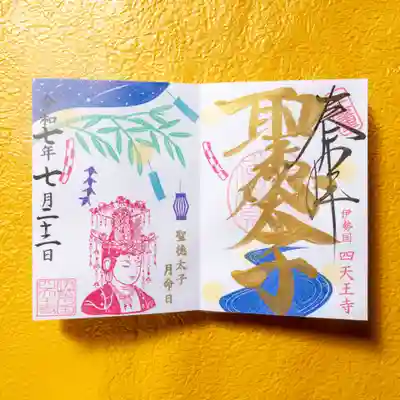 奉拝
聖徳太子
伊勢国 四天王寺
令和七年 七月二十二日
聖徳太子
月命日